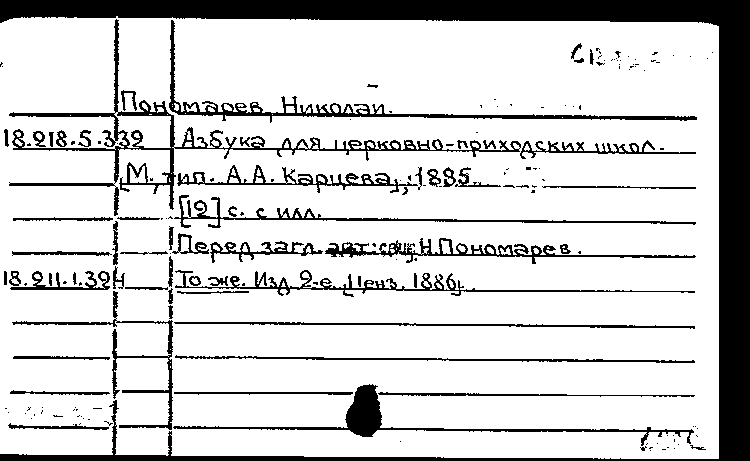 Пономарев, Николай.
18.218.5.339 Азбука для церковно-приходских школ.
[М., тип. А.А. Карцева], 1885.
[12] с. с илл.
Перед загл. авт: свящ. Н. Пономарев.
18.211.1.324 То же. Изд 2-е. [Ценз. 1886]